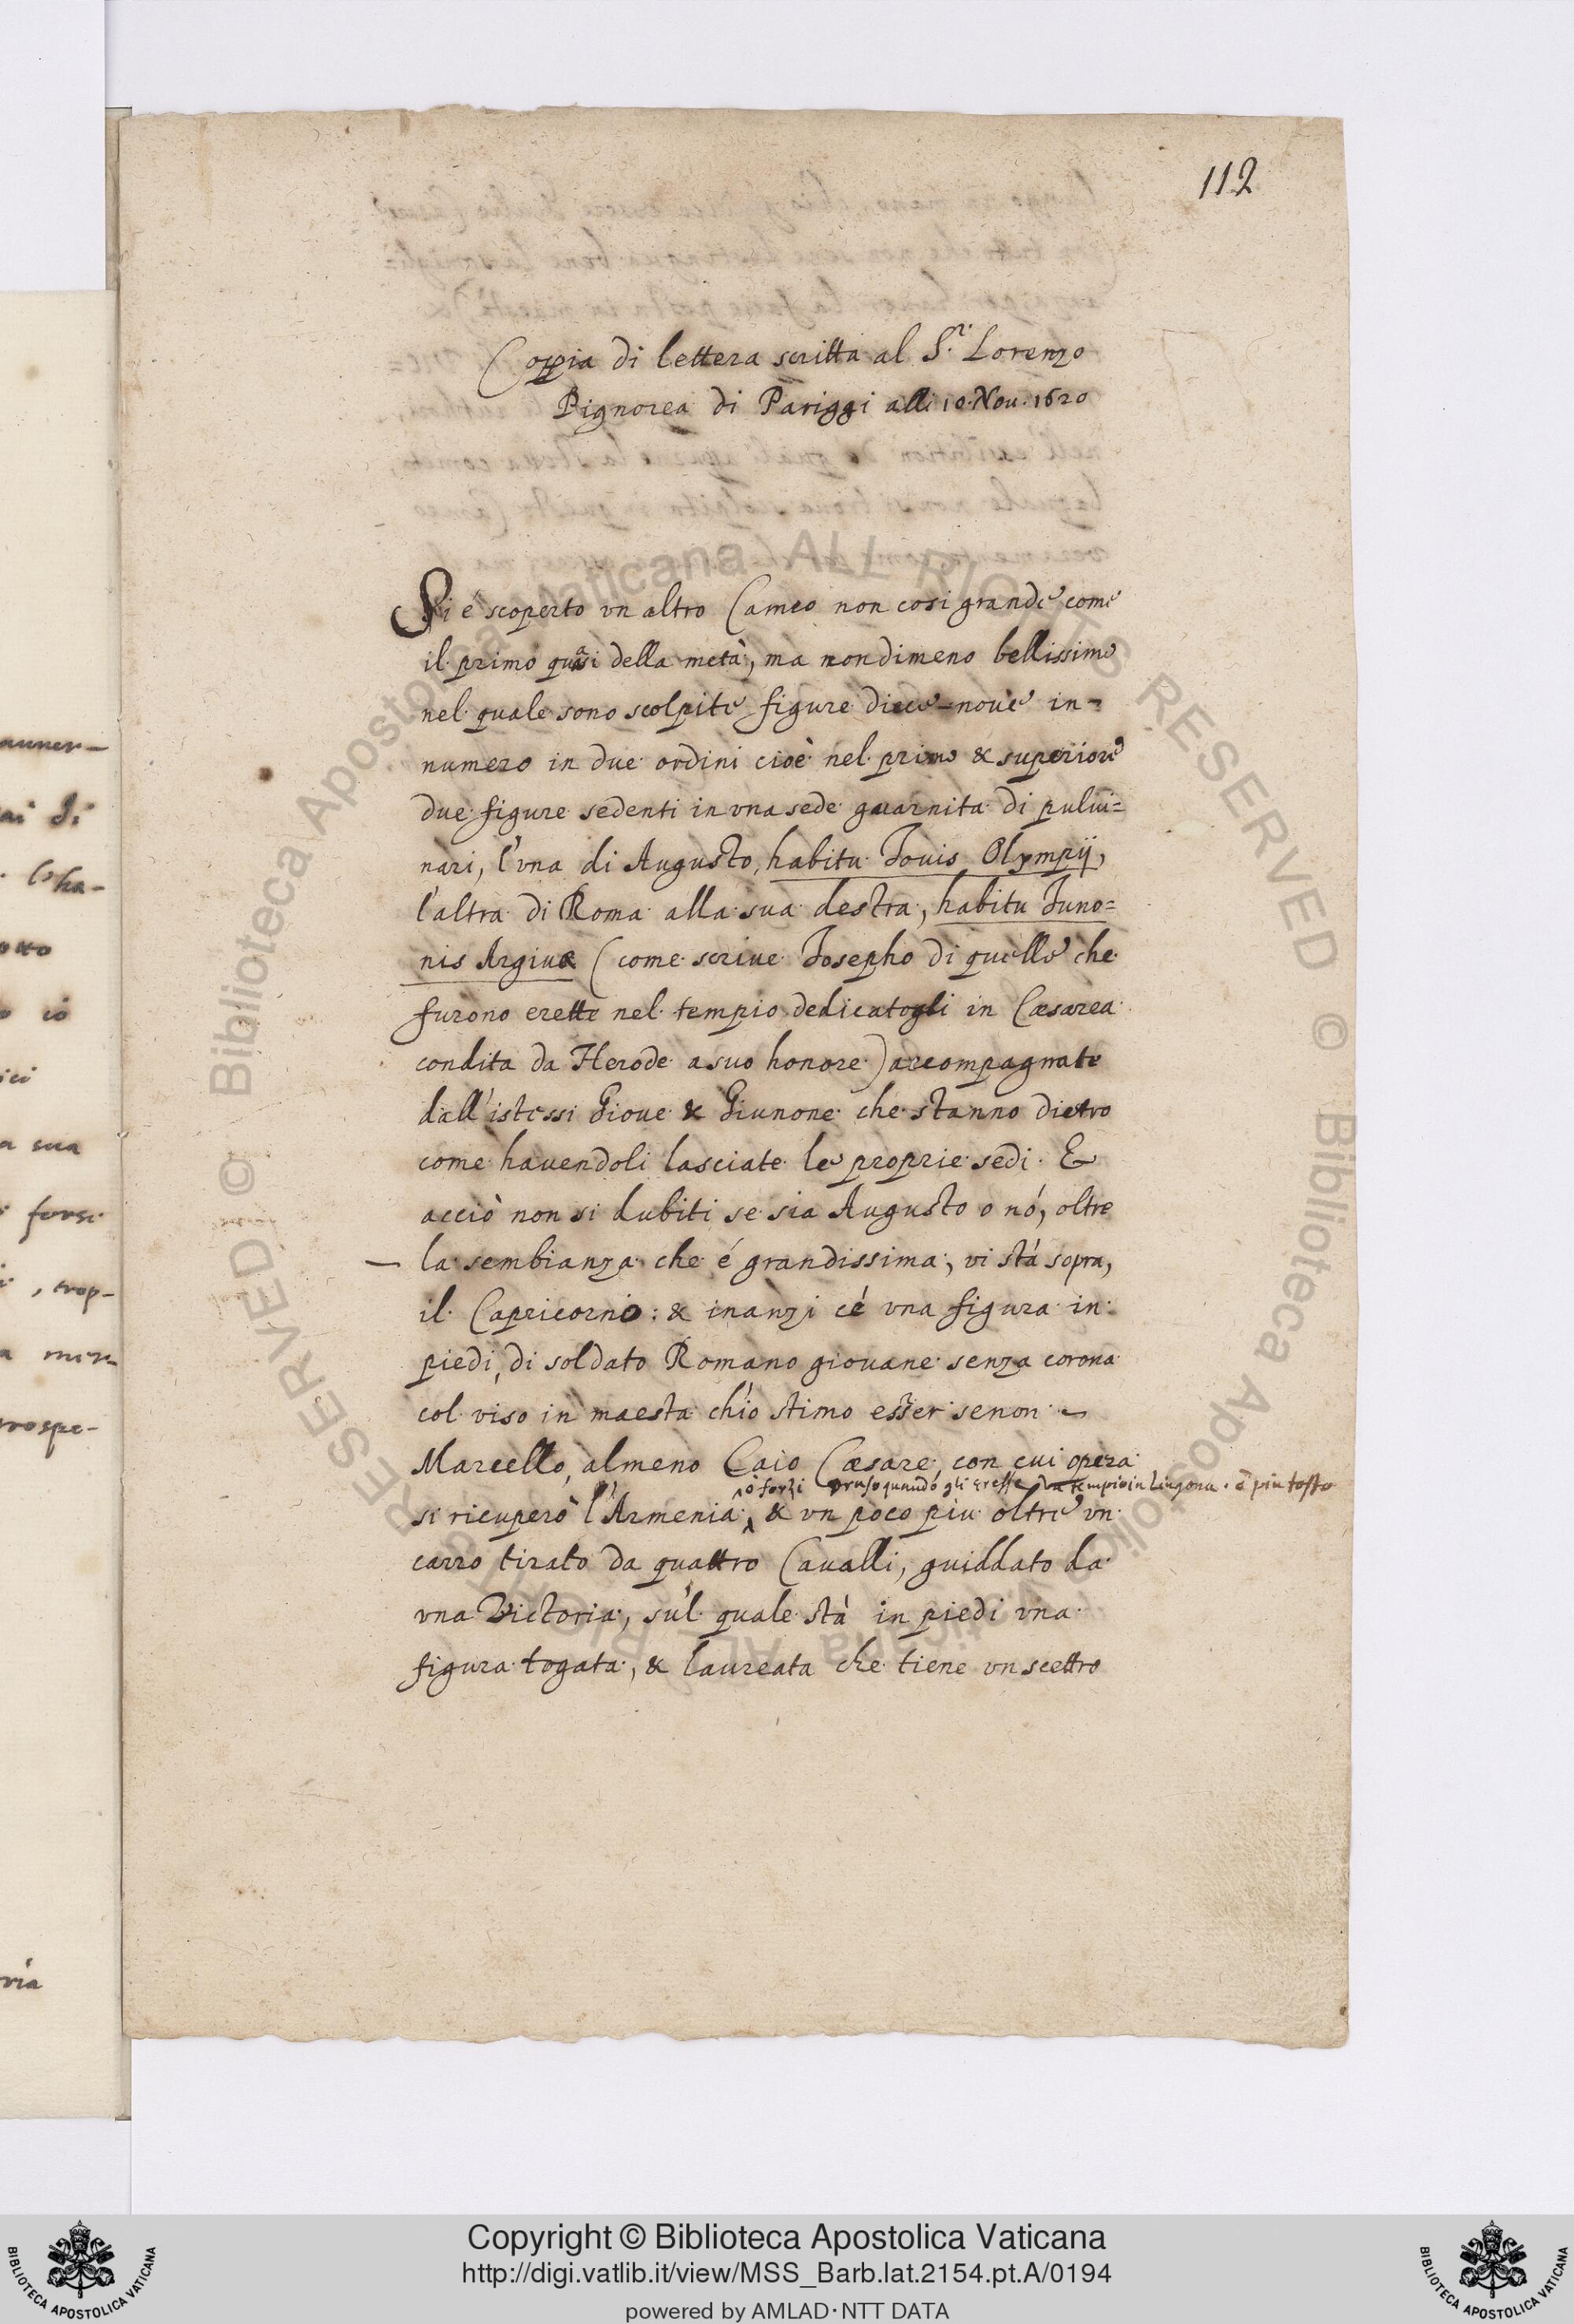 112
Coppia di lettera scritta al S.r Lorenzo
Pignorea di Pariggi alli 10. Nou. 1620
Si é scoperto vn altro Cameo non cosi grande come
il primo quasi della metà, ma nondimeno bellissimo
nel quale sono scolpite figure diece-noue in-
numero in due ordini cioè nel primo & superiore
due figure sedenti in vna sede guarnita di pului=
nari, l'vna di Augusto, habitu Iouis Olympij,
l'altra di Roma alla sua destra, habitu Iuno=
nis Argiuæ (come scriue Iosepho di quelle che
furono erette nel tempio dedicatogli in Cæsarea
condita da Herode a suo honore) accompagnate
dall'istessi Gioue & Giunone che stanno dietro
come hauendoli lasciate le proprie sedi. Et
acciò non si dubiti se sia Augusto o nó, oltre
la sembianza che é grandissima, vi stá sopra,
il Capricornio: & inanzi cé vna figura in
piedi, di soldato Romano giouane senza corona
col viso in maesta ch'io stimo esser senon
Marcello, almeno Caio Cæsare, con cui opera
ó forzi Druso quando gli eresse vn tempio in Lingona. é piu tosto
si ricuperò l'Armenia, & vn poco piu oltre vn
carro tirato da quattro Caualli, guiddato da
vna Victoria, sul quale stà in piedi vna
figura togata, & laureata che tiene vn scettro
auner-
ai di
ció
a sua
forse
, trop-
prospe-
ria
© Biblioteca Apostolica Vaticana ALL RIGHTS RESERVED © Biblioteca Apostolica Vaticana ALL RIGHTS RESERVED
Copyright © Biblioteca Apostolica Vaticana
http://digi.vatlib.it/view/MSS_Barb.lat.2154.pt.A/0194
powered by AMLAD·NTT DATA
BIBLIOTECA APOSTOLICA VATICANA
BIBLIOTECA APOSTOLICA VATICANA